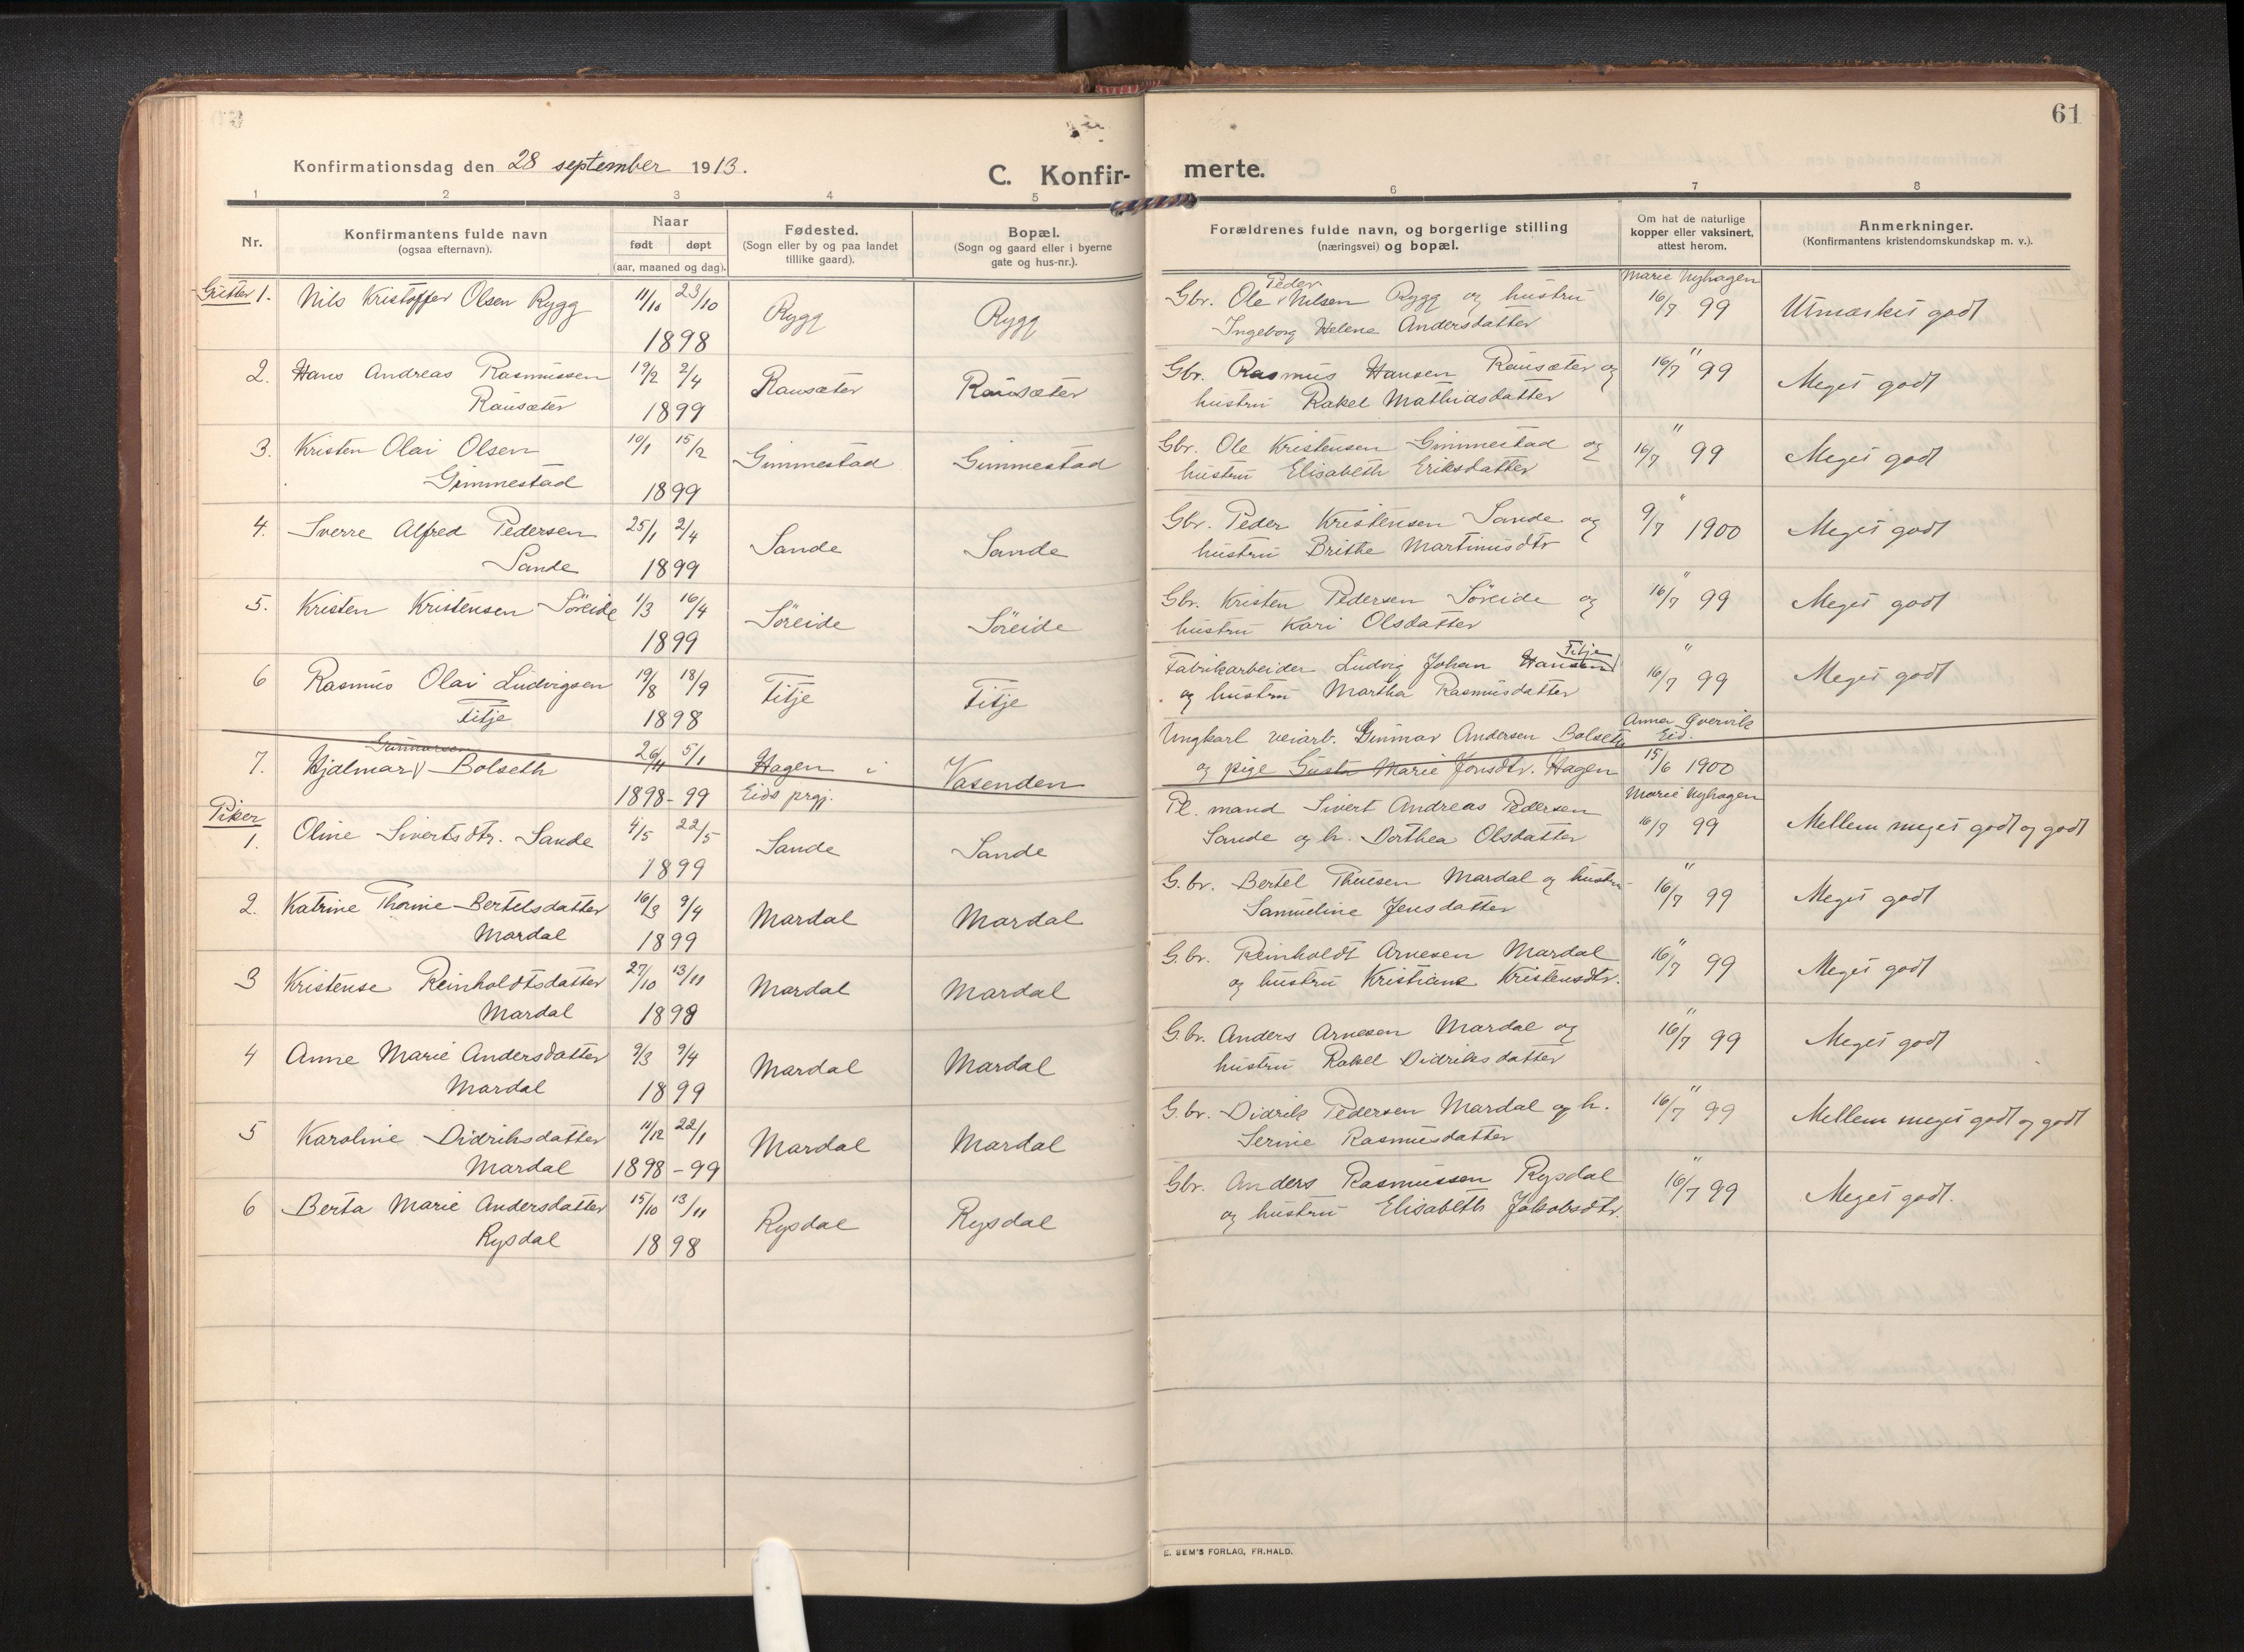 61
Konfirmationsdag den 28 september 1913.
C. Konfir-
merte.
1 2 3 4 5 6 7 8
Nr.
Konfirmantens fulde navn
(ogsaa efternavn).
Naar
født døpt
(aar, maaned og dag).
Fødested.
(Sogn eller by og paa landet
tillike gaard).
Bopæl.
(Sogn og gaard eller i byerne
gate og hus-nr.).
Forældrenes fulde navn, og borgerlige stilling
(næringsvei) og bopæl.
Om hat de naturlige
kopper eller vaksinert,
attest herom.
Anmerkninger.
(Konfirmantens kristendomskundskap m. v.).
Gutter 1. Nils Kristoffer Olsen Rygg 11/10 23/10 1898 Rygg Rygg
Gbr. Ole Peder Nilsen Rygg og hustru
Ingeborg Helene Andersdatter
Marie Nyhagen
16/7 99 Utmærket godt
2. Hans Andreas Rasmussen 19/2 2/4
Rausæter 1899 Rausæter Rausæter
Gbr. Rasmus Hansen Rausæter og
hustru Rakel Mathiasdatter
" 16/7 99 Meget godt
3. Kristen Olai Olsen 10/1 15/2
Gimmestad 1899 Gimmestad Gimmestad
Gbr. Ole Kristensen Gimmestad og
hustru Elisabeth Eriksdatter
" 16/7 99 Meget godt
4. Sverre Alfred Pedersen 25/1 2/4
Sande 1899 Sande Sande
Gbr. Peder Kristensen Sande og
hustru Brithe Martinusdtr
" 9/7 1900 Meget godt
5. Kristen Kristensen Söreide 1/3 16/4
1899 Söreide Söreide
Gbr. Kristen Pedersen Söreide og
hustru Kari Olsdatter
" 16/7 99 Meget godt
6 Rasmus Olai Ludvigsen 19/8 18/9
Fitje 1898 Fitje Fitje
Fabrikarbeider Ludvig Johan Hansen Fitje
og hustru Martha Rasmusdatter
" 16/7 99 Meget godt
7. Hjalmar Gunnarsen Bolseth 26/11 5/1
1898-99 Hagen i
Eids prgj. Vasenden
Ungkarl veiarb. Gunnar Andersen Bolseth
og pige Gusta Marie Jonsdtr. Hagen
Anna Qvervik
Eid.
15/6 1900
Piker
1. Oline Sivertsdtr. Sande 4/5 22/5
1899 Sande Sande
Pl. mand Sivert Andreas Pedersen
Sande og h. Dorthea Olsdatter
Marie Nyhagen
16/7 99 Mellem meget godt og godt
2. Katrine Thorine Bertelsdatter 16/3 9/4
Mardal 1899 Mardal Mardal
G.br. Bertel Thuesen Mardal og hustru
Samueline Jensdatter
" 16/7 99 Meget godt
3 Kristense Reinholdtsdatter 27/10 13/11
Mardal 1898 Mardal Mardal
G.br. Reinholdt Arnesen Mardal
og hustru Kristiane Kristensdtr.
" 16/7 99 Meget godt
4 Anne Marie Andersdatter 9/3 9/4
Mardal 1899 Mardal Mardal
G.br. Anders Arnesen Mardal og
hustru Rakel Didriksdatter
" 16/7 99 Meget godt
5 Karoline Didriksdatter 11/12 22/1
Mardal 1898-99 Mardal Mardal
G.br. Didrik Pedersen Mardal og h.
Serine Rasmusdatter
" 16/7 99 Mellem meget godt og godt
6 Berta Marie Andersdatter 15/10 13/11
Rysdal 1898 Rysdal Rysdal
Gbr. Anders Rasmussen Rysdal
og hustru Elisabeth Jakobsdtr.
" 16/7 99 Meget godt.
E. SEM'S FORLAG, FR.HALD.